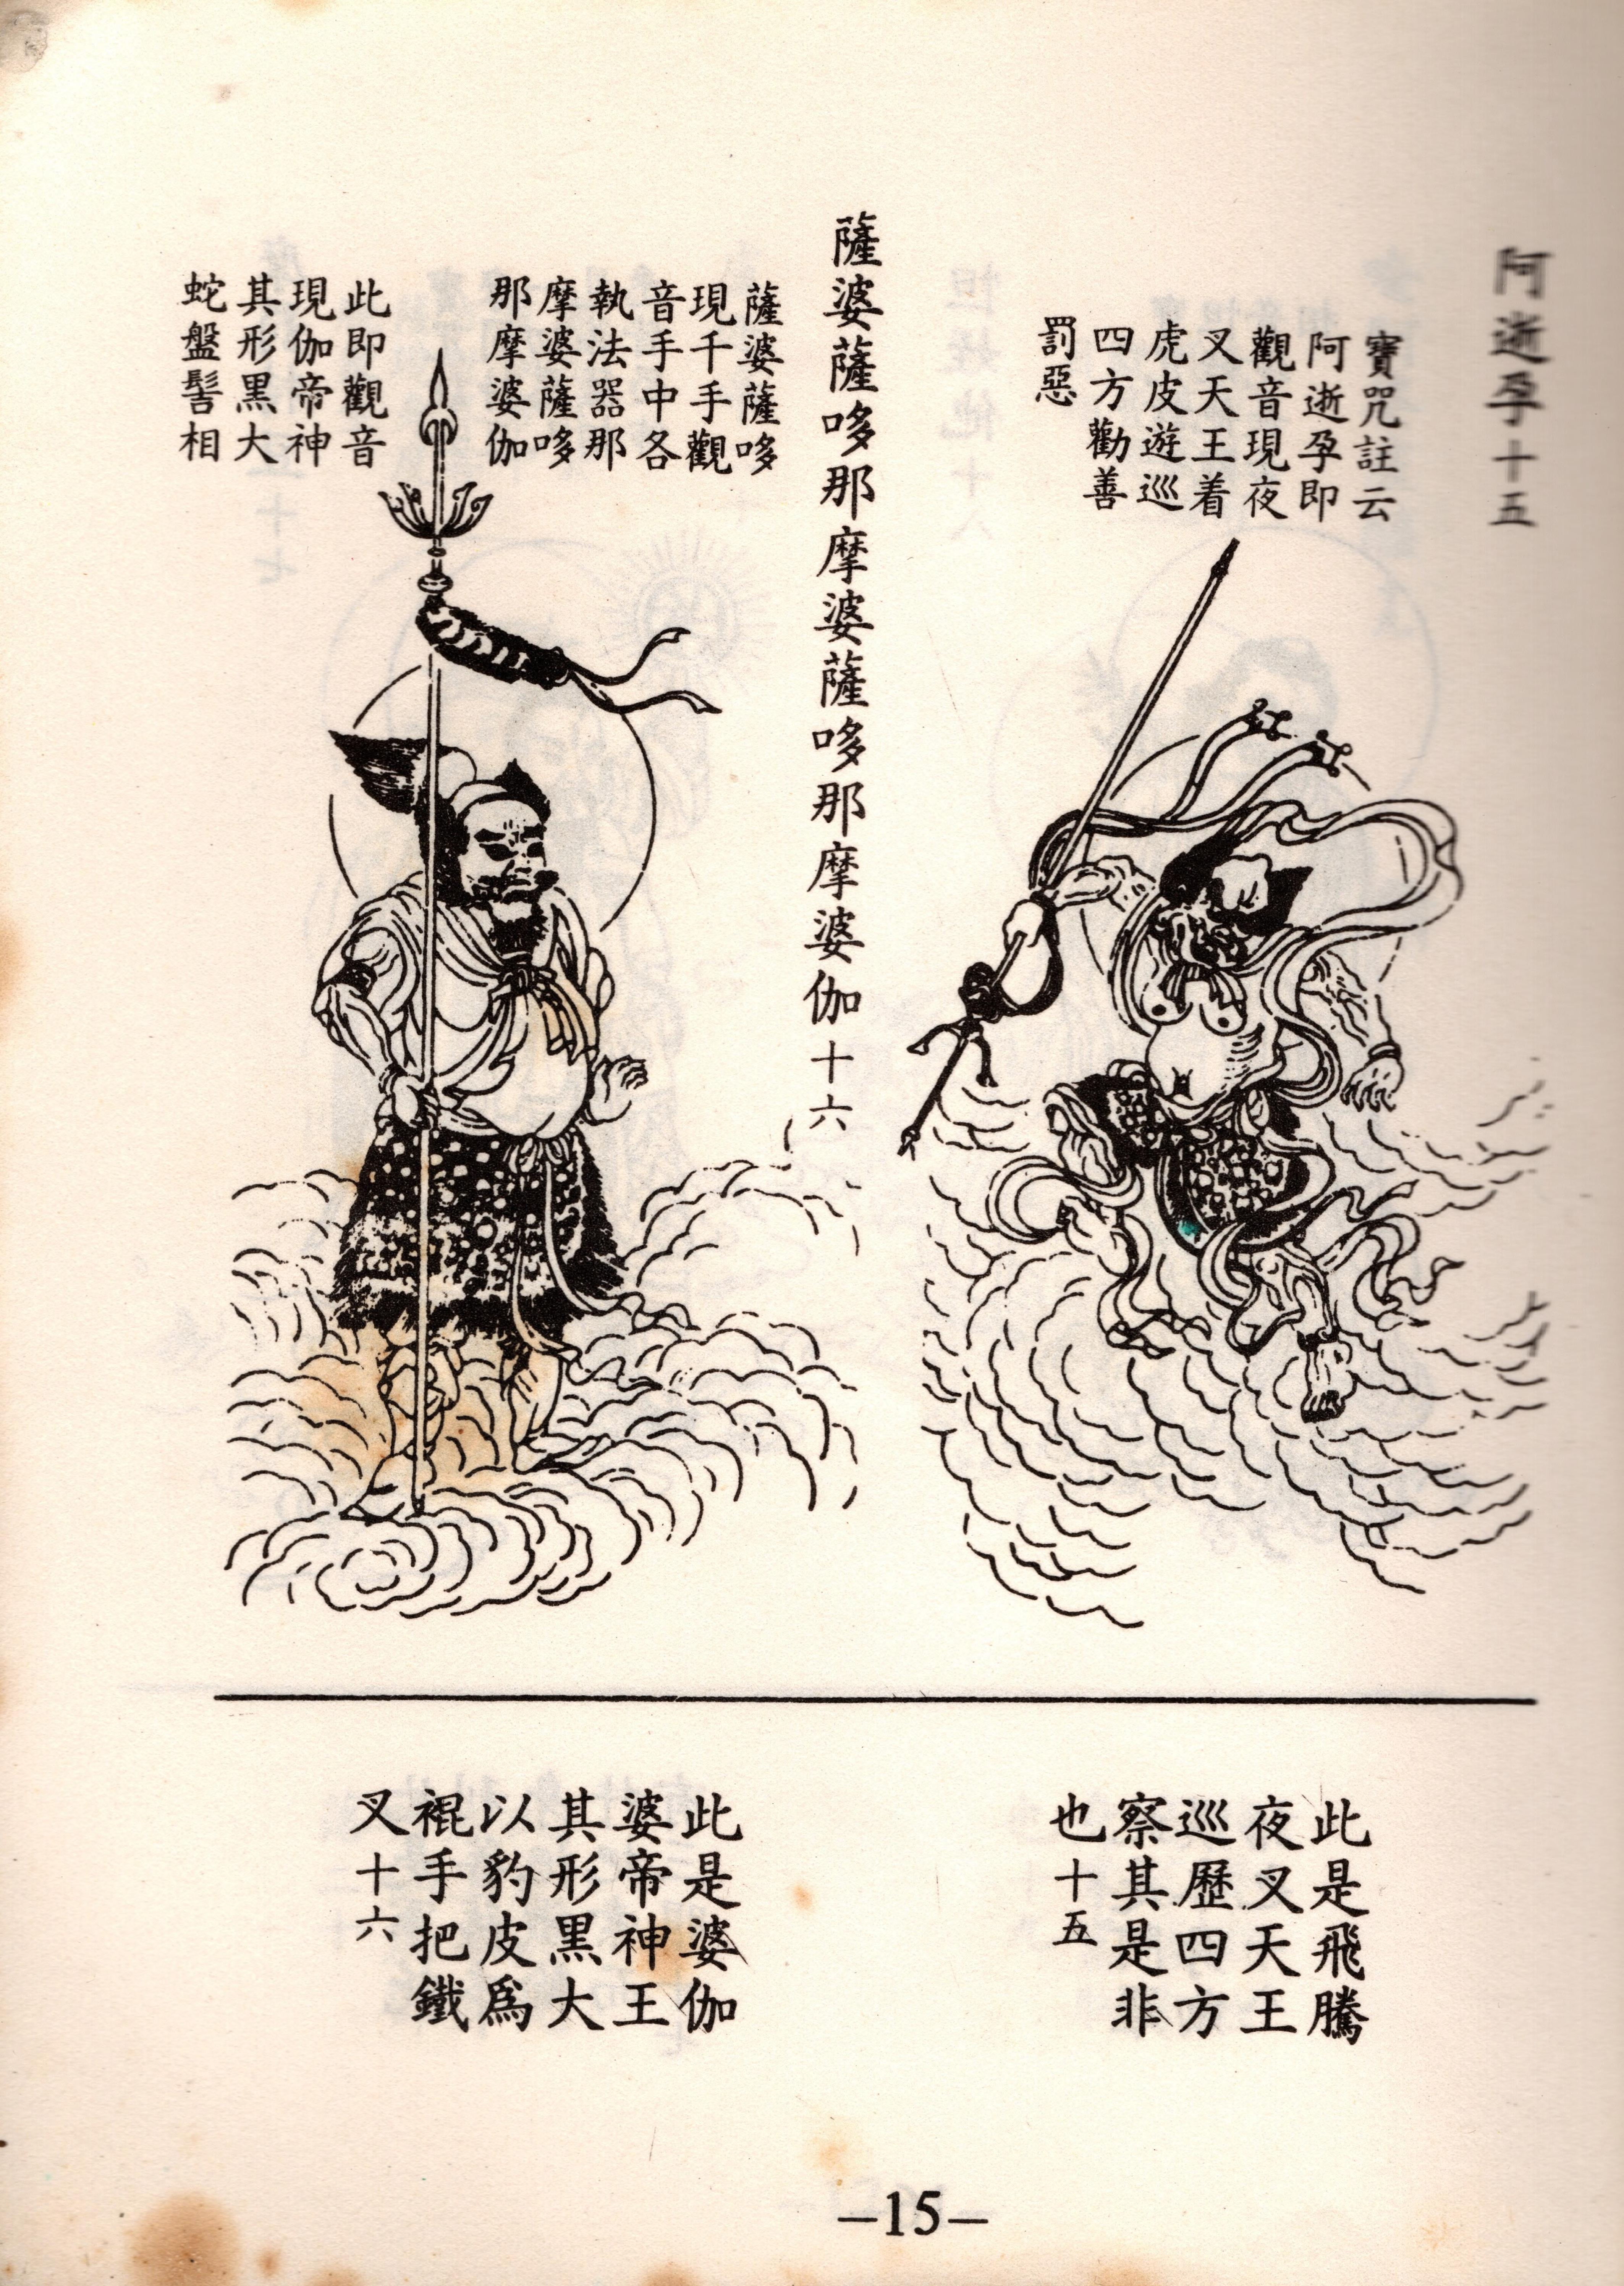 阿逝孕十五
寶咒註云
阿逝孕即
觀音現夜
叉天王着
虎皮遊巡
四方勸善
罰惡
薩婆薩哆那摩婆薩哆那摩婆伽十六
薩婆薩哆
現千手觀
音手中各
執法器那
摩婆薩哆
那摩婆伽
此即觀音
現伽帝神
其形黑大
蛇盤髻相
此是飛騰
夜叉天王
巡歷四方
察其是非
也十五
此是婆伽
婆帝神王
其形黑大
以豹皮爲
裩手把鐵
叉十六
–15–